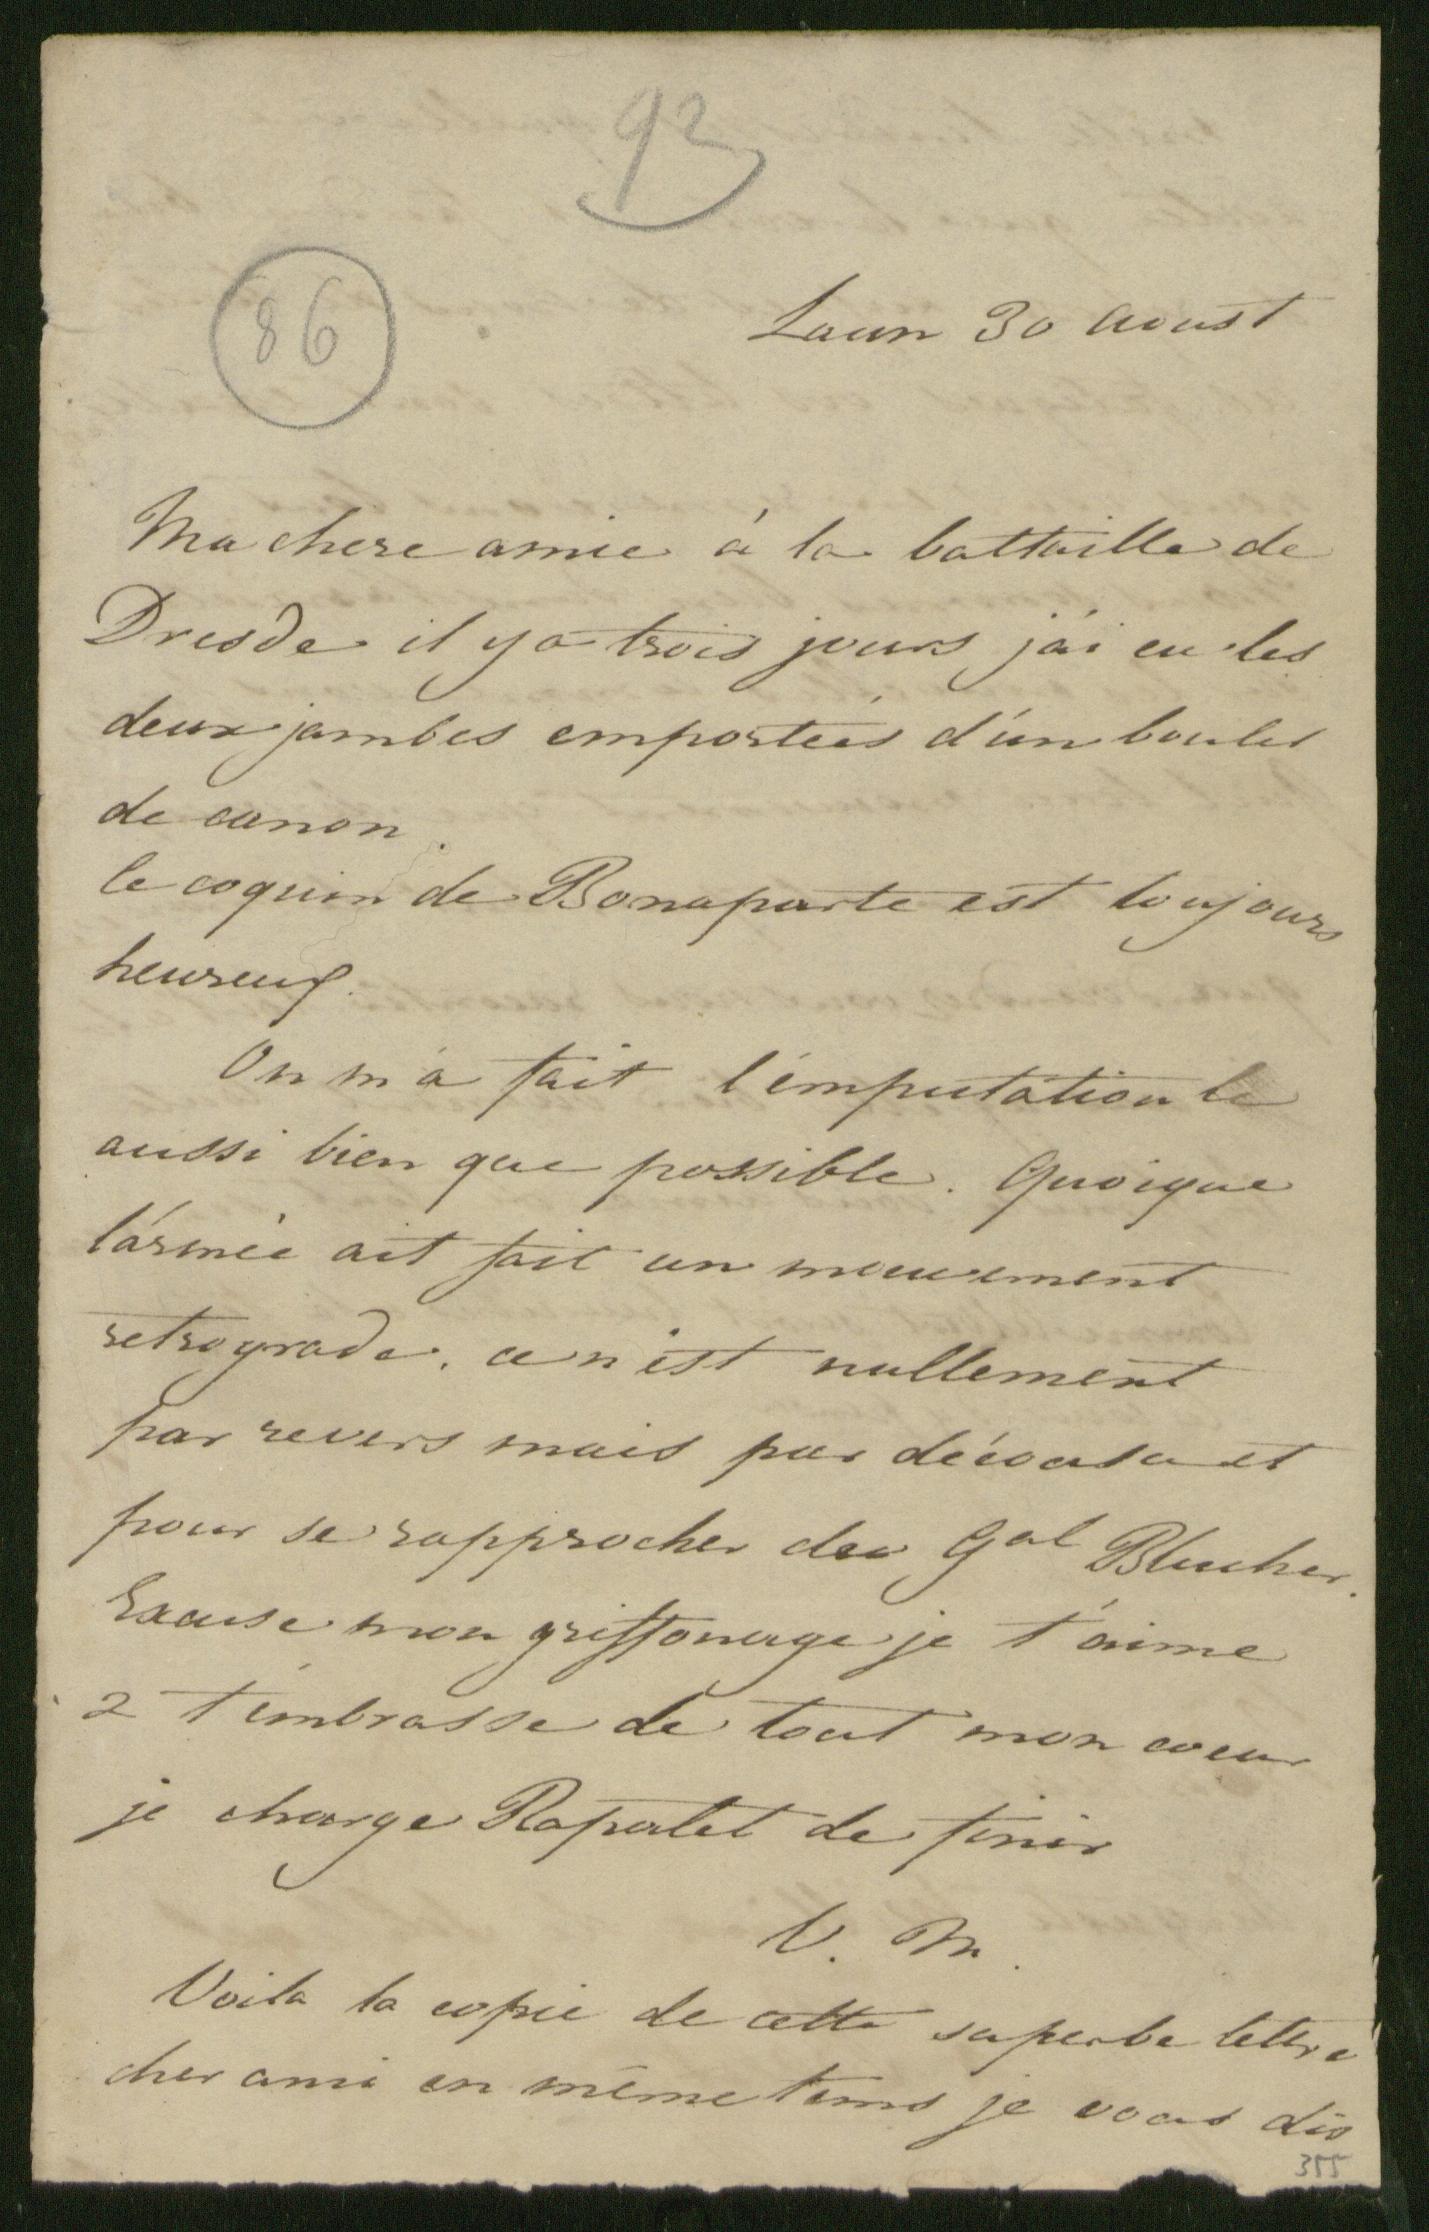 93
86
Laun 30 Aoust
Ma chere amie á la battaille de
Dresde il y a trois jours j'ai eu les
deux jambes emportées d'un boulet
de canon.
le coquin de Bonaparte est toujours
heureux.
On m'a fait l'emputation le
aussi bien que possible. Quoique
l'armée ait fait un mouvement
retrograde. ce n'est nullement
par revers mais par décousu et
pour se rapprocher du Gal Blucher.
Excuse mon griffonage je t'aime
& t'embrasse de tout mon coeur
je charge Rapatel de finir
V. M.
Voila la copie de cette superbe lettre
cher ami en même tems je vous dis
355